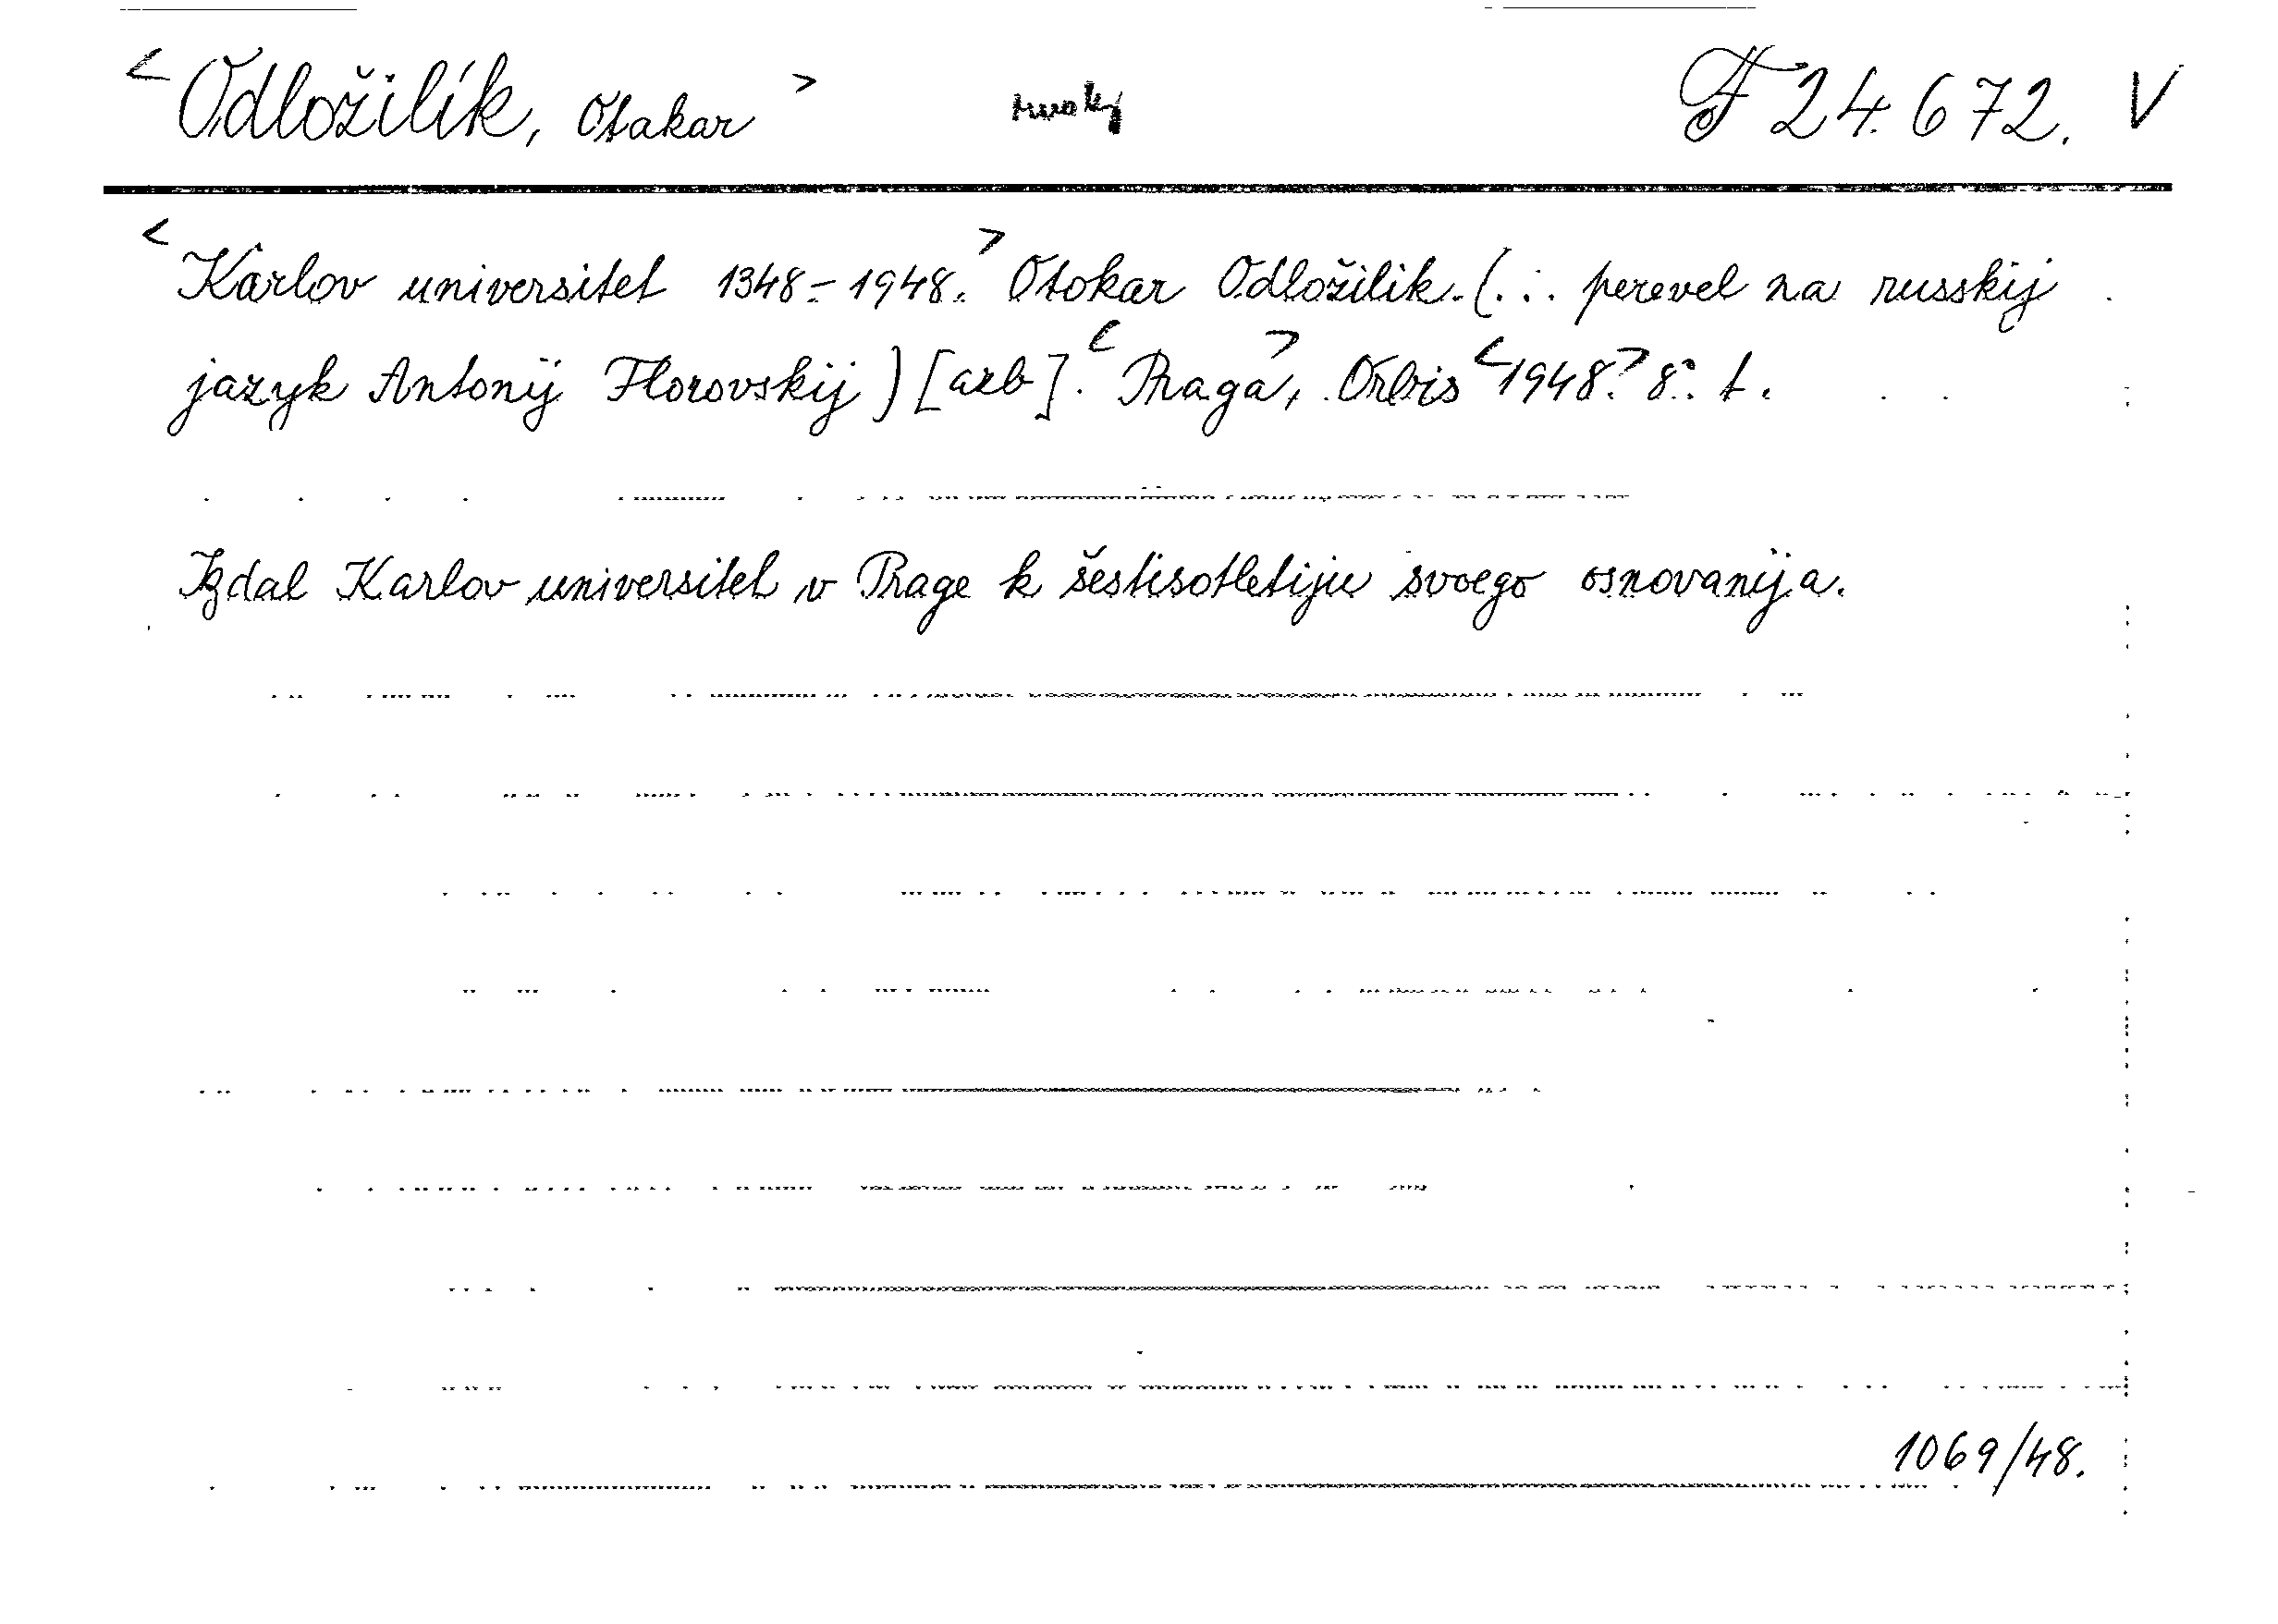 <Odložilík, Otakar> rusky F 24.672. V
<Karlov universitet 1348-1948.> Otokar Odložilik. (... perevel na russkij
jazyk Antonij Florovskij) [azb]. <Praga>, Orbis <1948.> 8° t.
Izdal Karlov universitet v Prage k šestisotletiju svoego osnovanija.
1069/48.